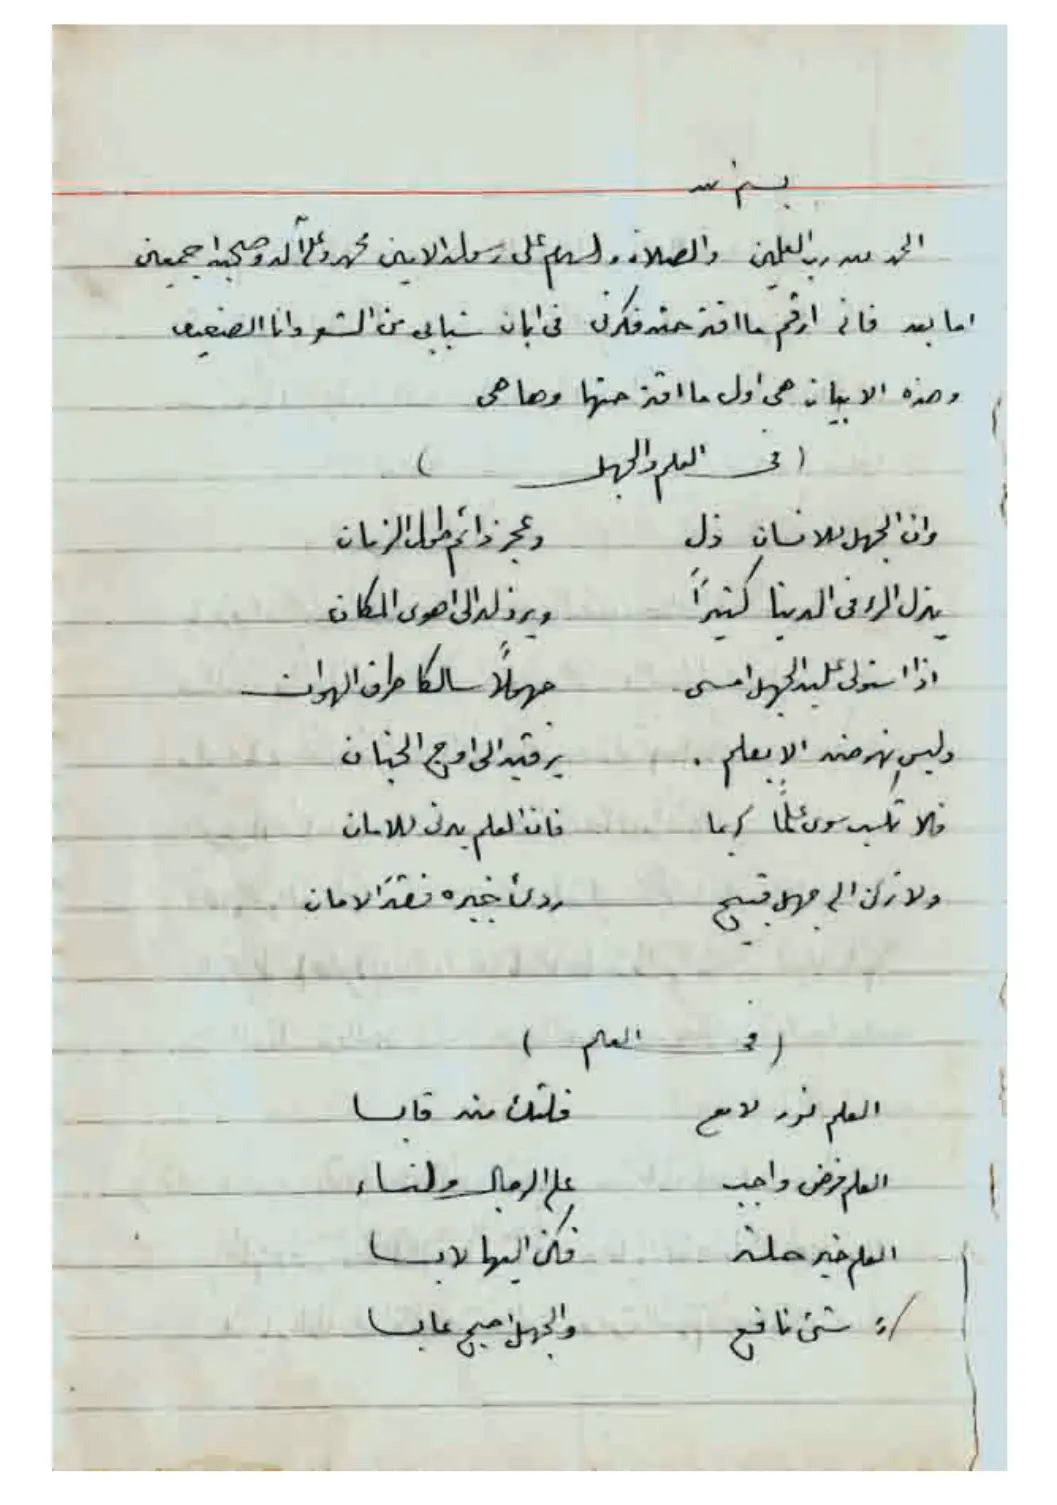 بسم الله
الحمد لله رب العلمين والصلاة والسلام على رسوله الامين محمد وعلى آله وصحبه اجمعين
اما بعد فاني ارقم ما اقترحته فكرتي في ابان شبابي من الشعر وانا الضعيف
وهذه الابيات هي اول ما اقترحتها وها هي
( في العلم والجهل )
وان الجهل للانسان ذل وعجز دائم طول الزمان
ينزل المرء في الدنيا كثيراً ويرذله الى اهوى المكان
اذا استولى عليه الجهل امسى جهولاً سالكا طرق الهوان
وليس الا بعلم يرقيه الى اوج الجنان
فلا تكسب سوى علماً كريما فان العلم يدني للامان
ولا تركن الى جهل قبيح ردئ خيره فقد الامان
( في العلم )
العلم نور لامع فلتك منه قابسا
العلم فرض واجب على الرجال والنساء
العلم خير حلة فكن اليها لابسا
شئ نافع والجهل اصبح عابسا